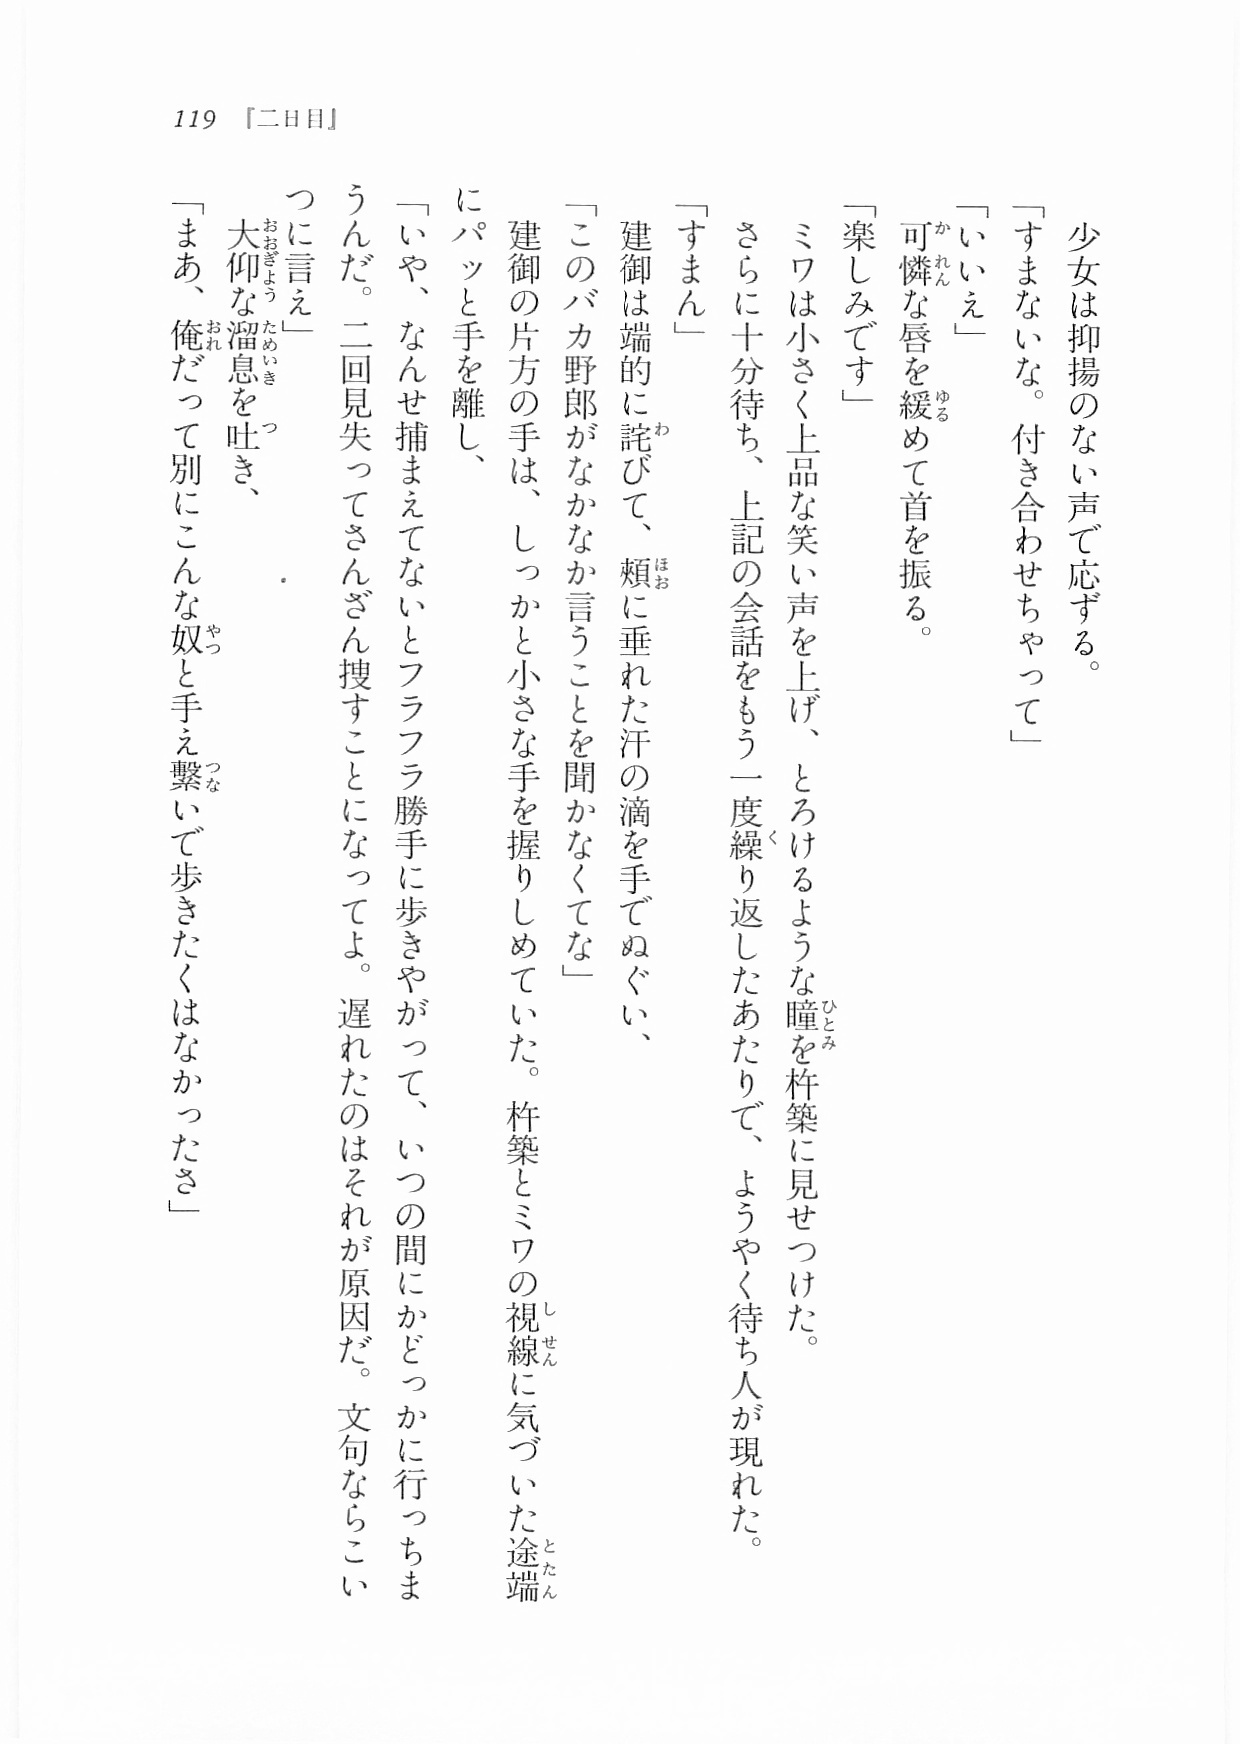 119 『二日目』
　少女は抑揚のない声で応ずる。
「すまないな。付き合わせちゃって」
「いいえ」
　可憐な唇を緩めて首を振る。
「楽しみです」
　ミワは小さく上品な笑い声を上げ、とろけるような瞳を杵築に見せつけた。
　さらに十分待ち、上記の会話をもう一度繰り返したあたりで、ようやく待ち人が現れた。
「すまん」
　建御は端的に詫びて、頬に垂れた汗の滴を手でぬぐい、
「このバカ野郎がなかなか言うことを聞かなくてな」
　建御の片方の手は、しっかと小さな手を握りしめていた。杵築とミワの視線に気づいた途端
にパッと手を離し、
「いや、なんせ捕まえてないとフラフラ勝手に歩きやがって、いつの間にかどっかに行っちま
うんだ。二回見失ってさんざん捜すことになってよ。遅れたのはそれが原因だ。文句ならこい
つに言え」
　大仰な溜息を吐き、
「まあ、俺だって別にこんな奴と手え繋いで歩きたくはなかったさ」